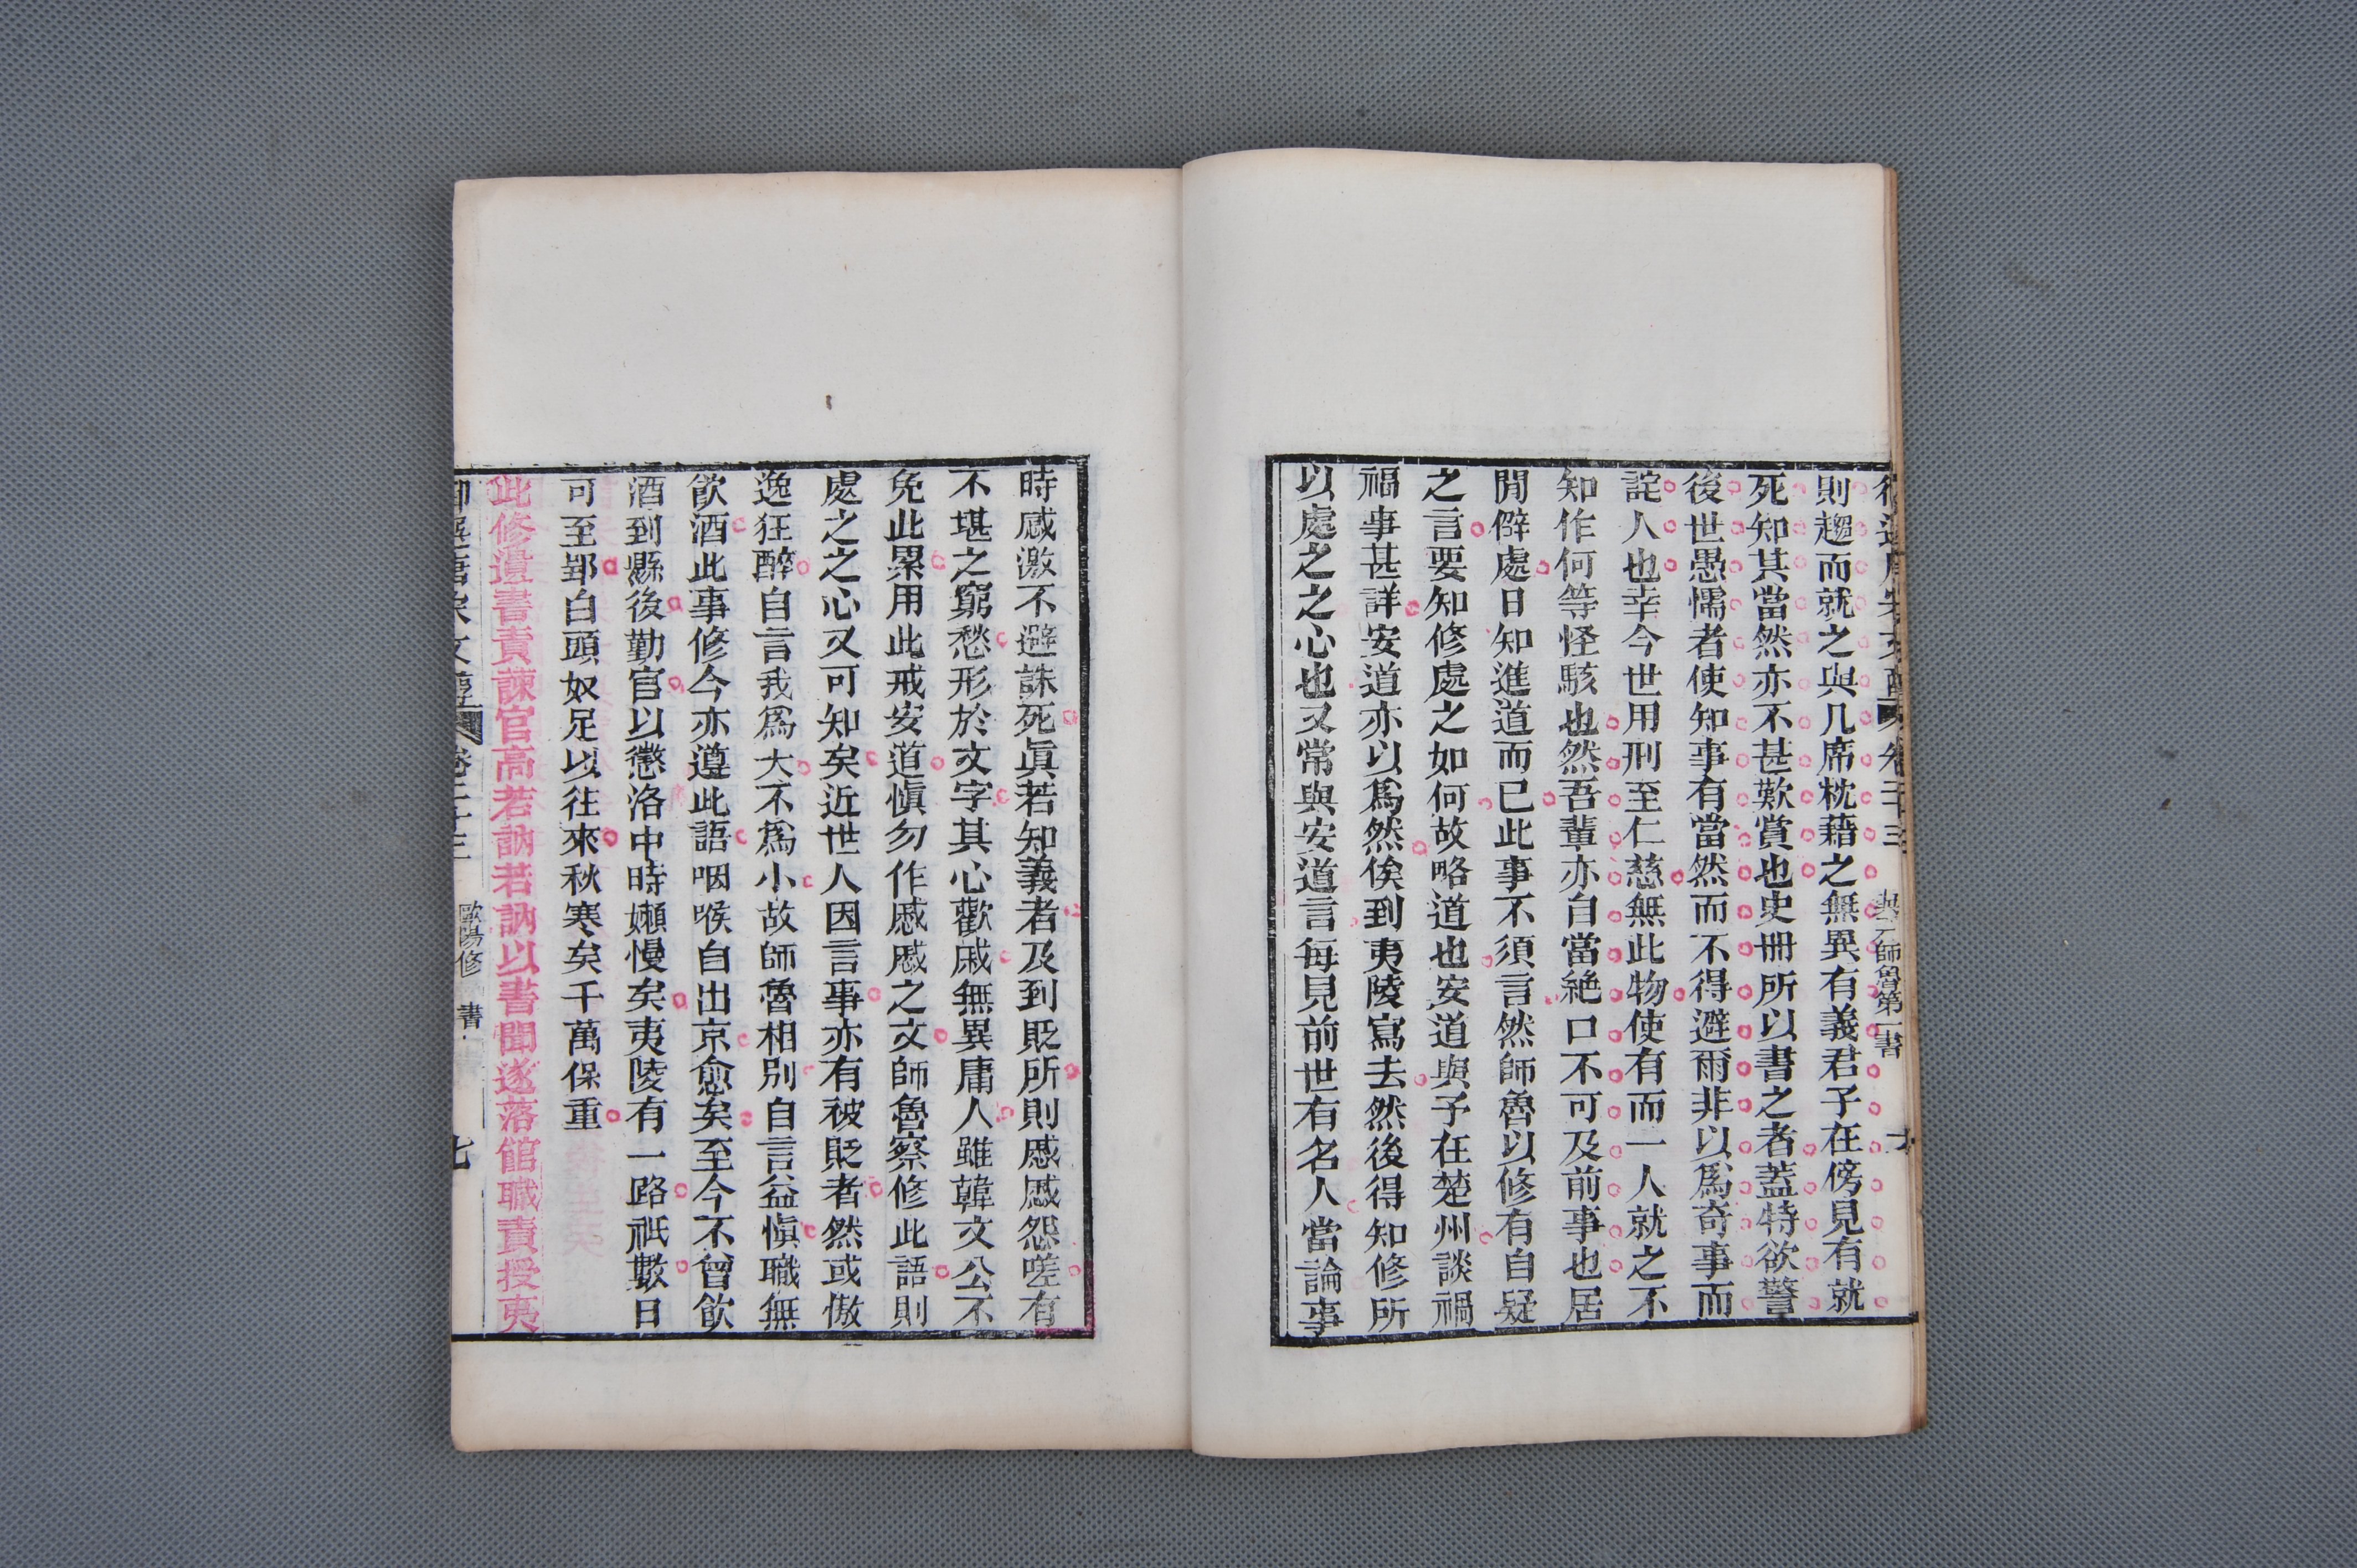 則趨而就之與几席枕藉之無異有義君子在傍見有就
死知其當然亦不甚歎賞也史冊所以書之者蓋特欲警
後世愚懦者使知事有當然而不得避爾非以爲奇事而
詫人也幸今世用刑至仁慈無此物使有而一人就之不
知作何等怪駭也然吾輩亦自當絶口不可及前事也居
閒僻處日知進道而已此事不須言然師魯以修有自疑
之言要知修處之如何故略道也安道與予在楚州談禍
福事甚詳安道亦以爲然俟到夷陵寫去然後得知修所
以處之之心也又常與安道言每見前世有名人當論事
時感激不避誅死眞若知義者及到貶所則慼慼怨嗟有
不堪之窮愁形於文字其心歡戚無異庸人雖韓文公不
免此累用此戒安道愼勿作慼慼之文師魯察修此語則
處之之心又可知矣近世人因言事亦有被貶者然或傲
逸狂醉自言我爲大不爲小故師魯相別自言益愼職無
飮酒此事修今亦遵此語咽喉自出京愈矣至今不曾飮
酒到縣後勤官以懲洛中時嬾慢矣夷陵有一路祇數日
可至郢白頭奴足以往來秋寒矣千萬保重
此修遺書責諫官高若訥若訥以書聞遂落館職責授夷
歐陽修 書